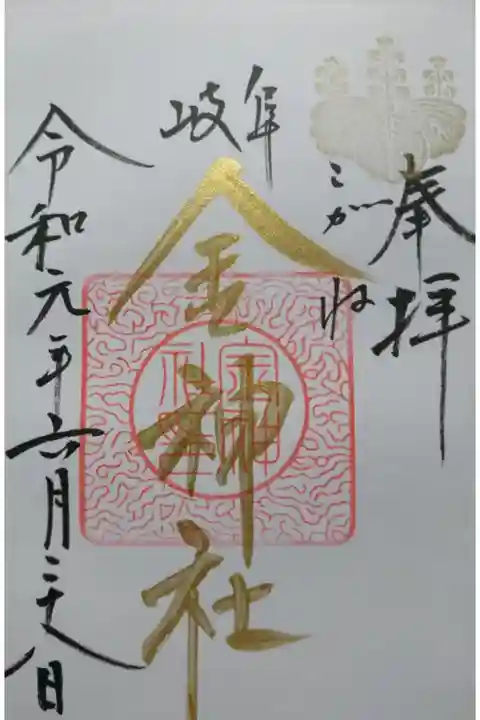 奉拝
岐阜
こがね
金神社
令和元年六月二十八日